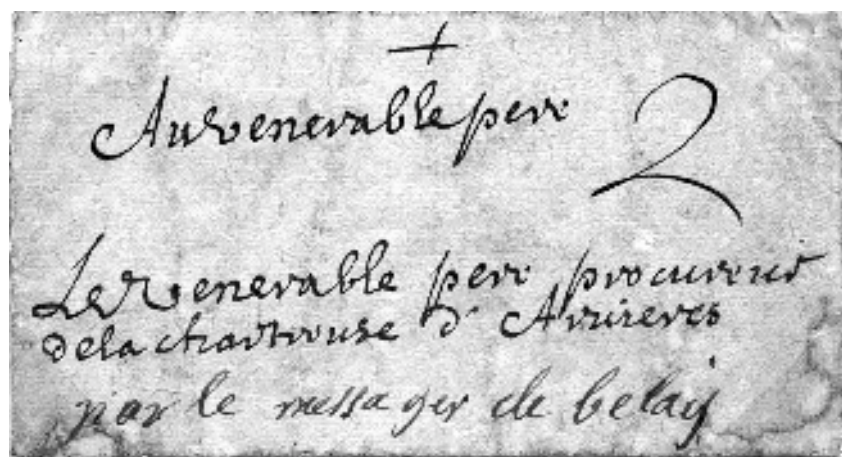 +
Au venerable pere 2
Le venerable pere procureur
de la chartreuse d'Arvieres
par le messager de belaÿ